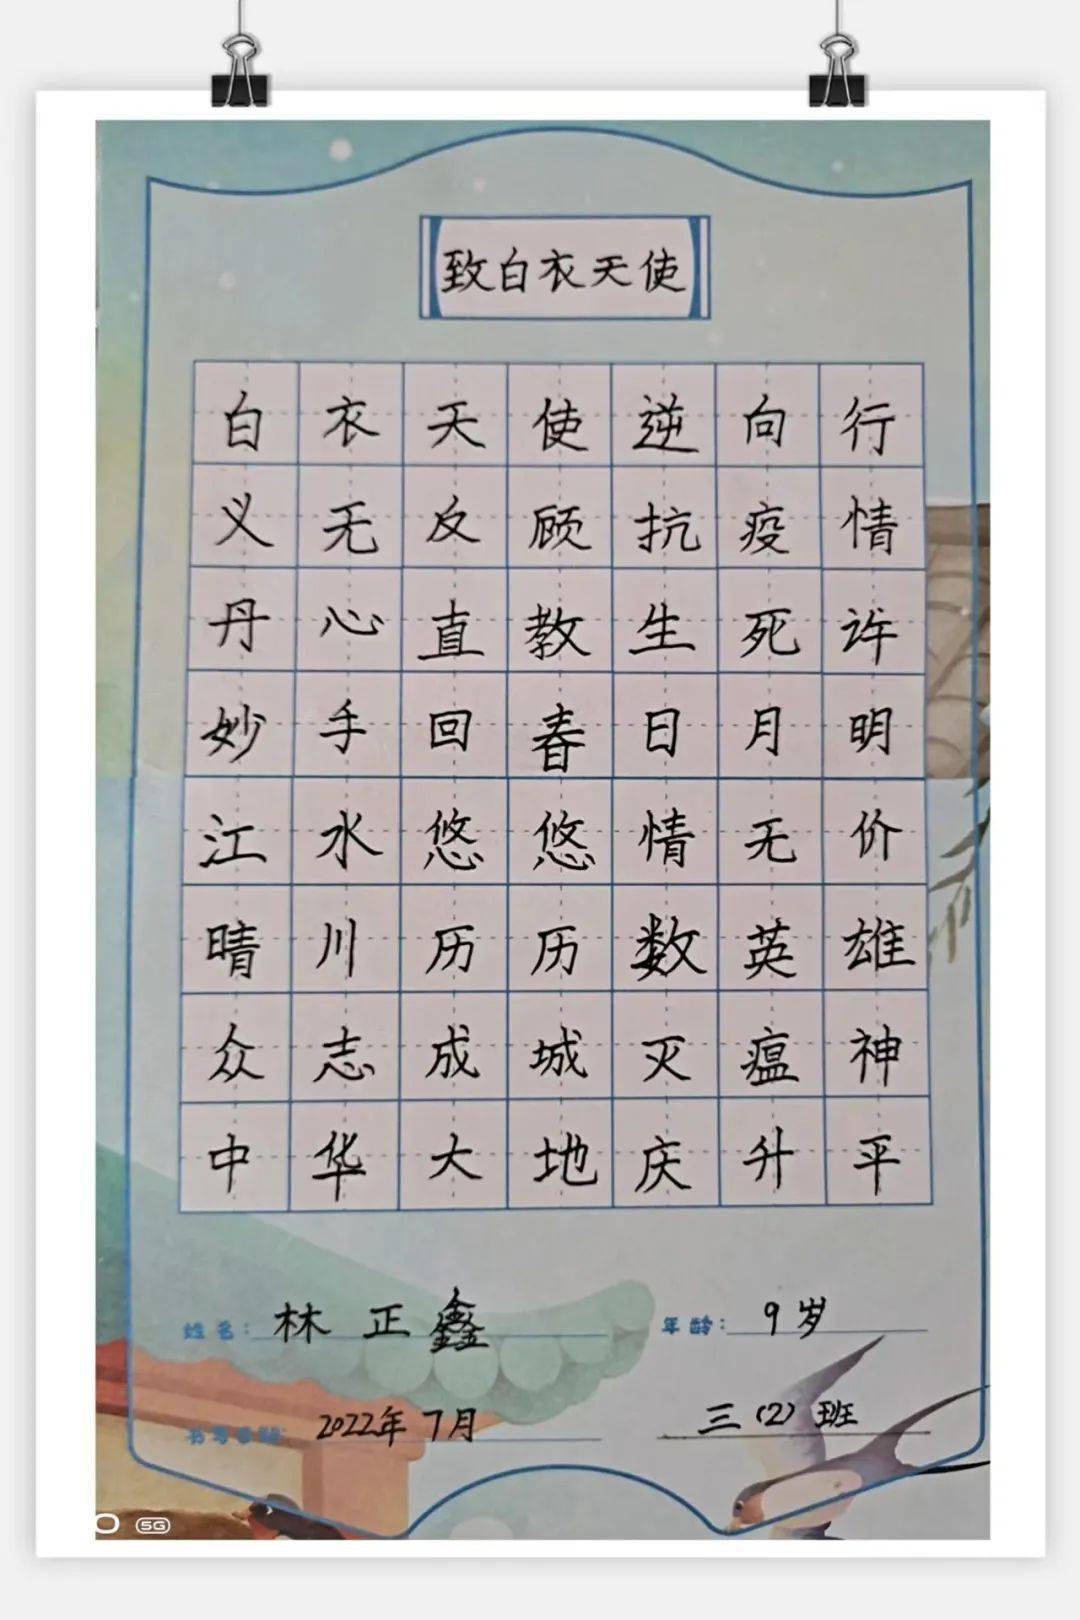 致白衣天使
白衣天使逆向行
义无反顾抗疫情
丹心直教生死许
妙手回春日月明
江水悠悠情无价
晴川历历数英雄
众志成城灭瘟神
中华大地庆升平
姓名：林正鑫 年龄：9岁
书写日期：2022年7月 三（2）班
5G